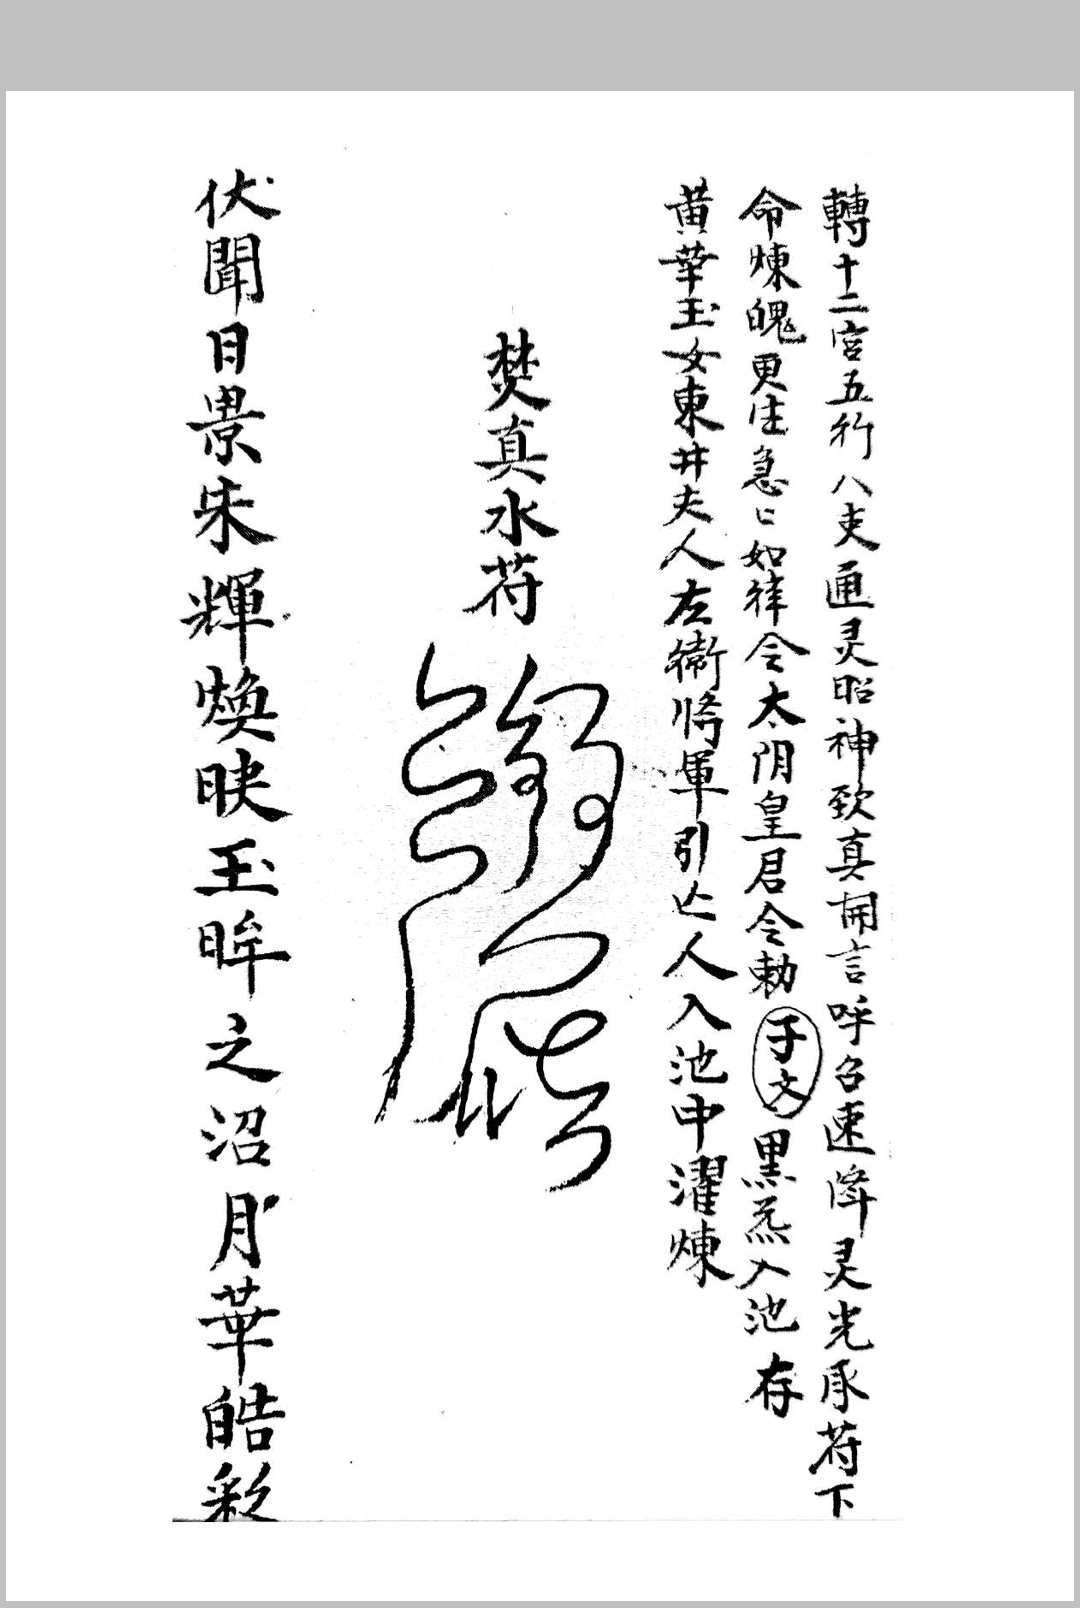 轉十二宮五行八吏通灵昭神致真開言呼召速降灵光承苻下
命煉魄更生急〻如律令太阴皇君令勅子文黑炁入池存
黄華玉女東井夫人左衛將軍引亡人入池中濯煉
焚真水苻
伏聞日景朱輝煥映玉眸之沼月華皓彩